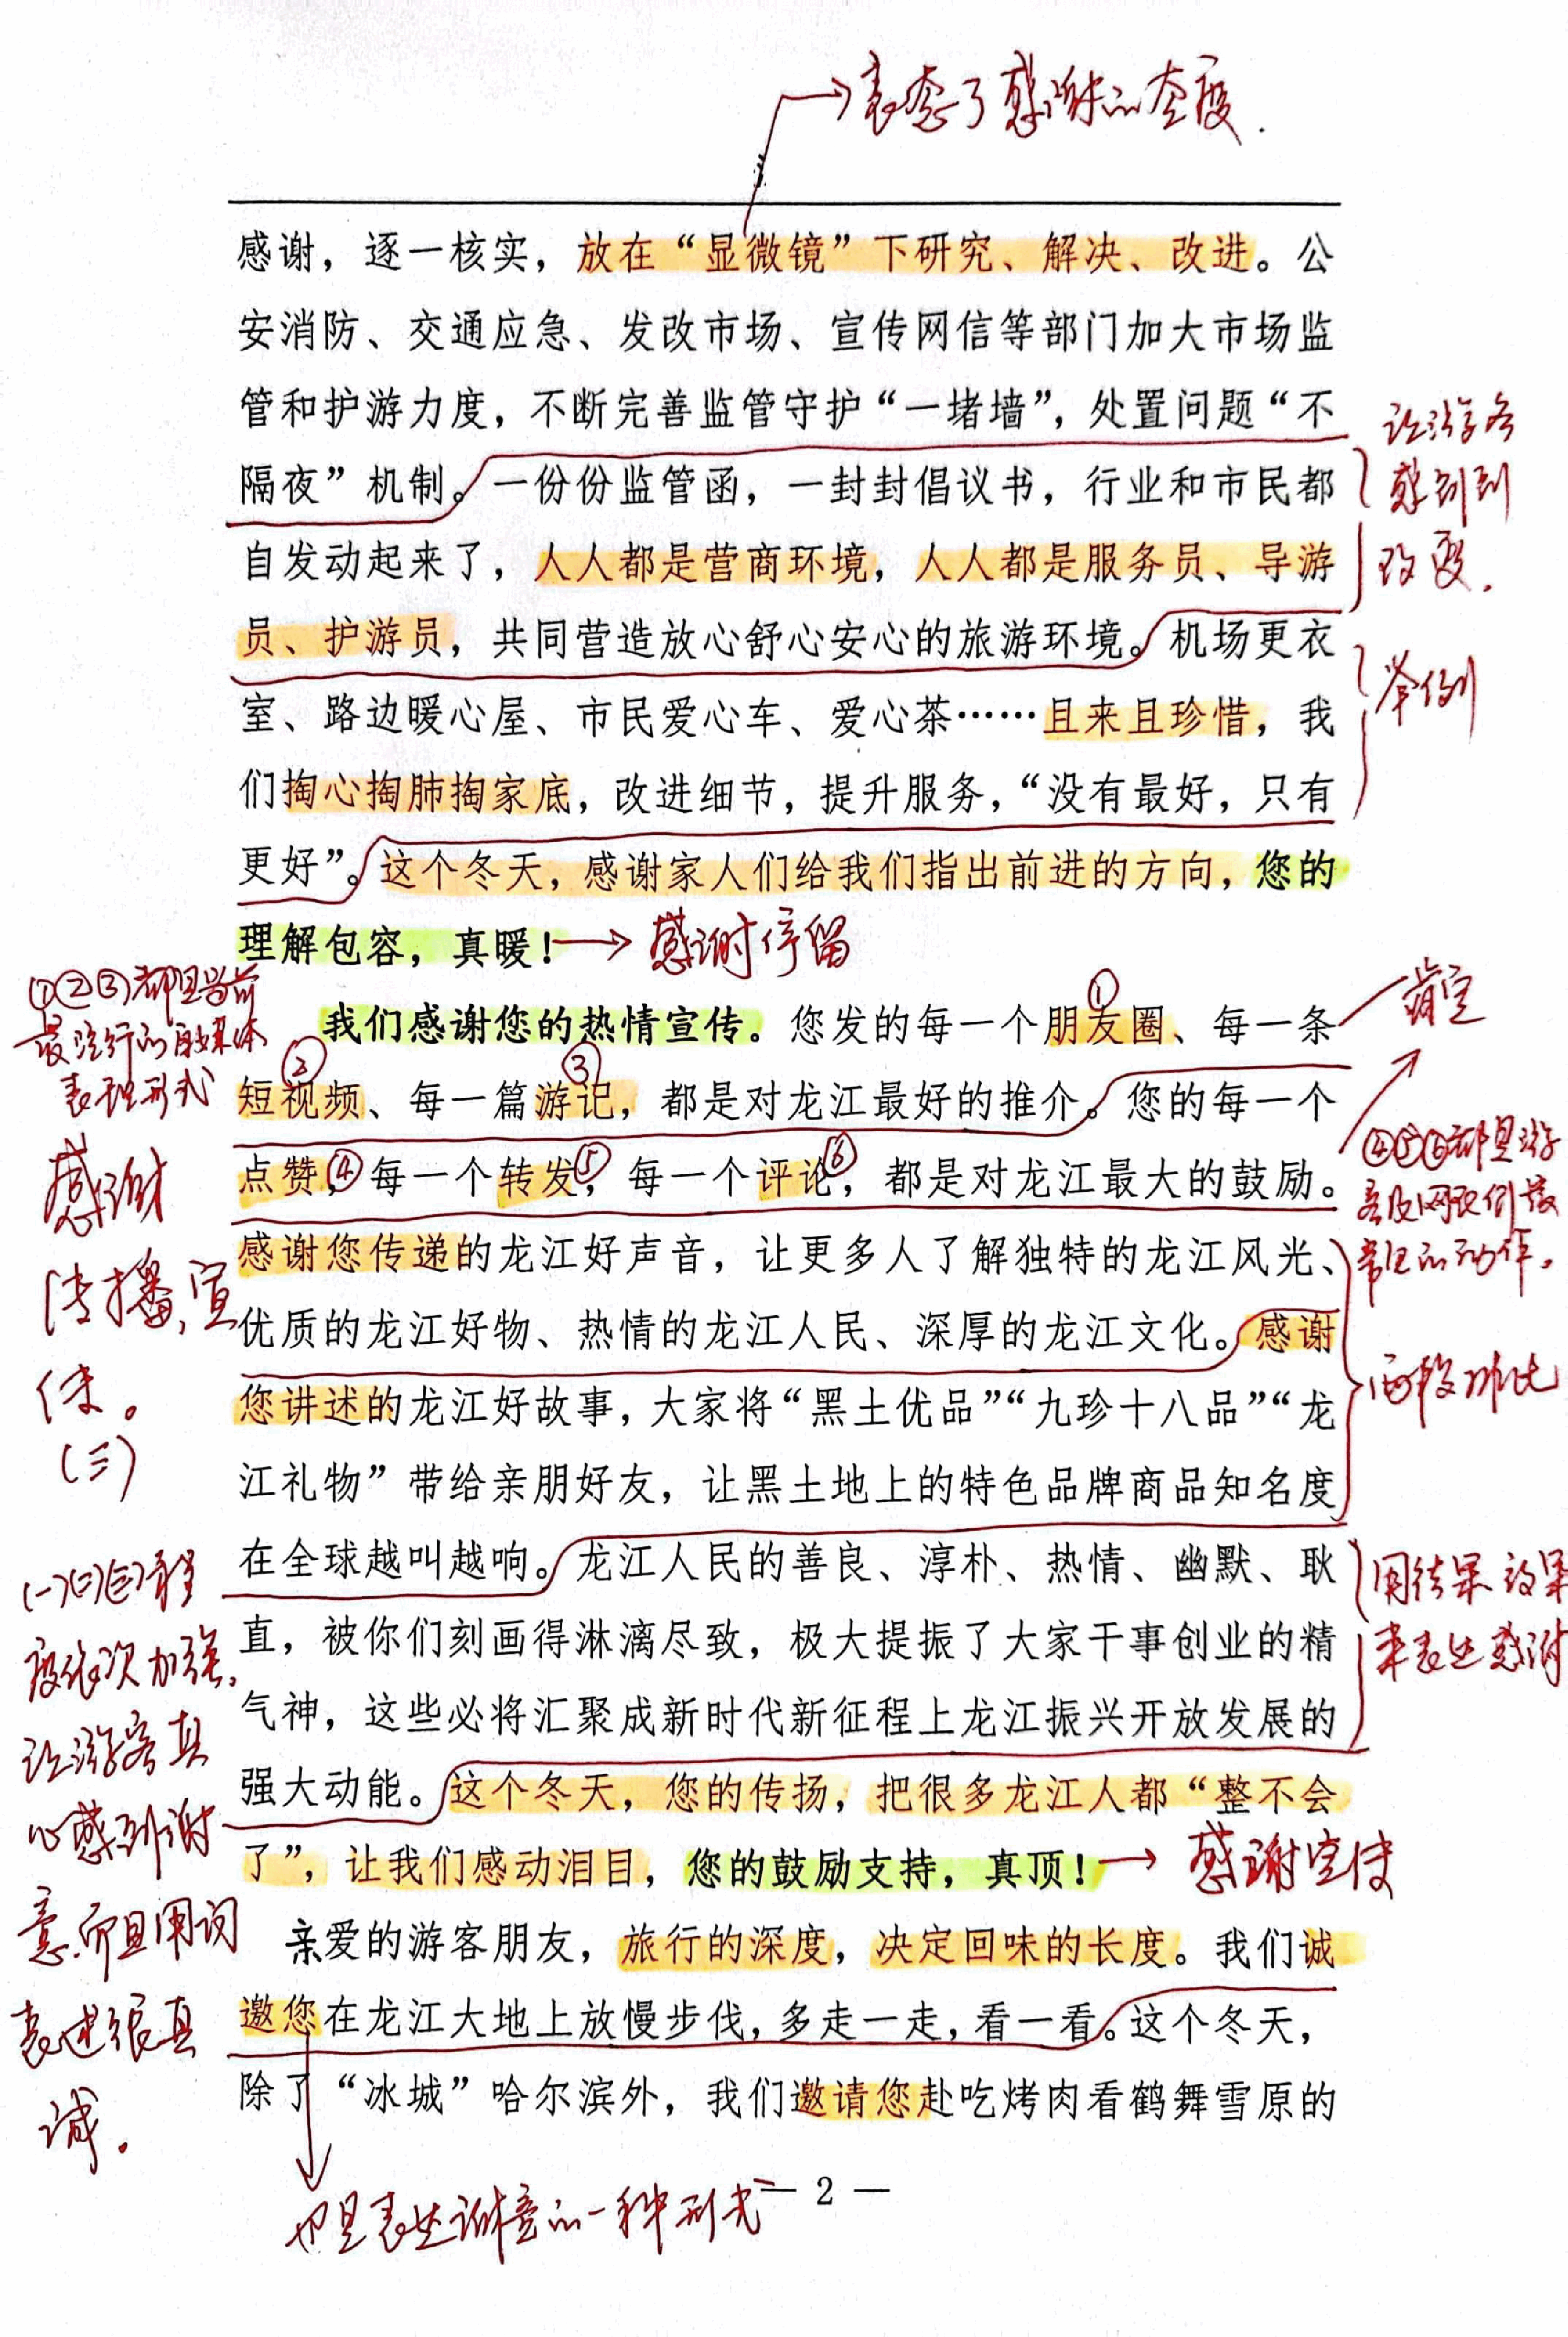 表态了感谢的态度.
感谢，逐一核实，放在“显微镜”下研究、解决、改进。公
安消防、交通应急、发改市场、宣传网信等部门加大市场监
管和护游力度，不断完善监管守护“一堵墙”，处置问题“不
隔夜”机制。一份份监管函，一封封倡议书，行业和市民都
自发动起来了，人人都是营商环境，人人都是服务员、导游
员、护游员，共同营造放心舒心安心的旅游环境。机场更衣
室、路边暖心屋、市民爱心车、爱心茶……且来且珍惜，我
们掏心掏肺掏家底，改进细节，提升服务，“没有最好，只有
更好”。这个冬天，感谢家人们给我们指出前进的方向，您的
理解包容，真暖！
感谢停留
让游客
感到到
改变.
举例
我们感谢您的热情宣传。您发的每一个朋友圈、每一条
短视频、每一篇游记，都是对龙江最好的推介。您的每一个
点赞，每一个转发，每一个评论，都是对龙江最大的鼓励。
感谢您传递的龙江好声音，让更多人了解独特的龙江风光、
优质的龙江好物、热情的龙江人民、深厚的龙江文化。感谢
您讲述的龙江好故事，大家将“黑土优品”“九珍十八品”“龙
江礼物”带给亲朋好友，让黑土地上的特色品牌商品知名度
在全球越叫越响。龙江人民的善良、淳朴、热情、幽默、耿
直，被你们刻画得淋漓尽致，极大提振了大家干事创业的精
气神，这些必将汇聚成新时代新征程上龙江振兴开放发展的
强大动能。这个冬天，您的传扬，把很多龙江人都“整不会
了”，让我们感动泪目，您的鼓励支持，真顶！
感谢宣传
①
②
③
④
⑤
⑥
①②③都是当前
最流行的自媒体
表现形式
感谢
传播,宣
传。
(三)
(一)(二)(三)程
度依次加强,
让游客真
心感到谢
意,而且用词
表述很真
诚.
肯定
④⑤⑥都是游
客及网民们最
常见的动作。
两段排比
用结果效果
来表达感谢
亲爱的游客朋友，旅行的深度，决定回味的长度。我们诚
邀您在龙江大地上放慢步伐，多走一走，看一看。这个冬天，
除了“冰城”哈尔滨外，我们邀请您赴吃烤肉看鹤舞雪原的
也是表达谢意的一种形式
— 2 —